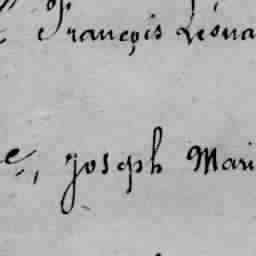 François Léona
e, joseph Mari